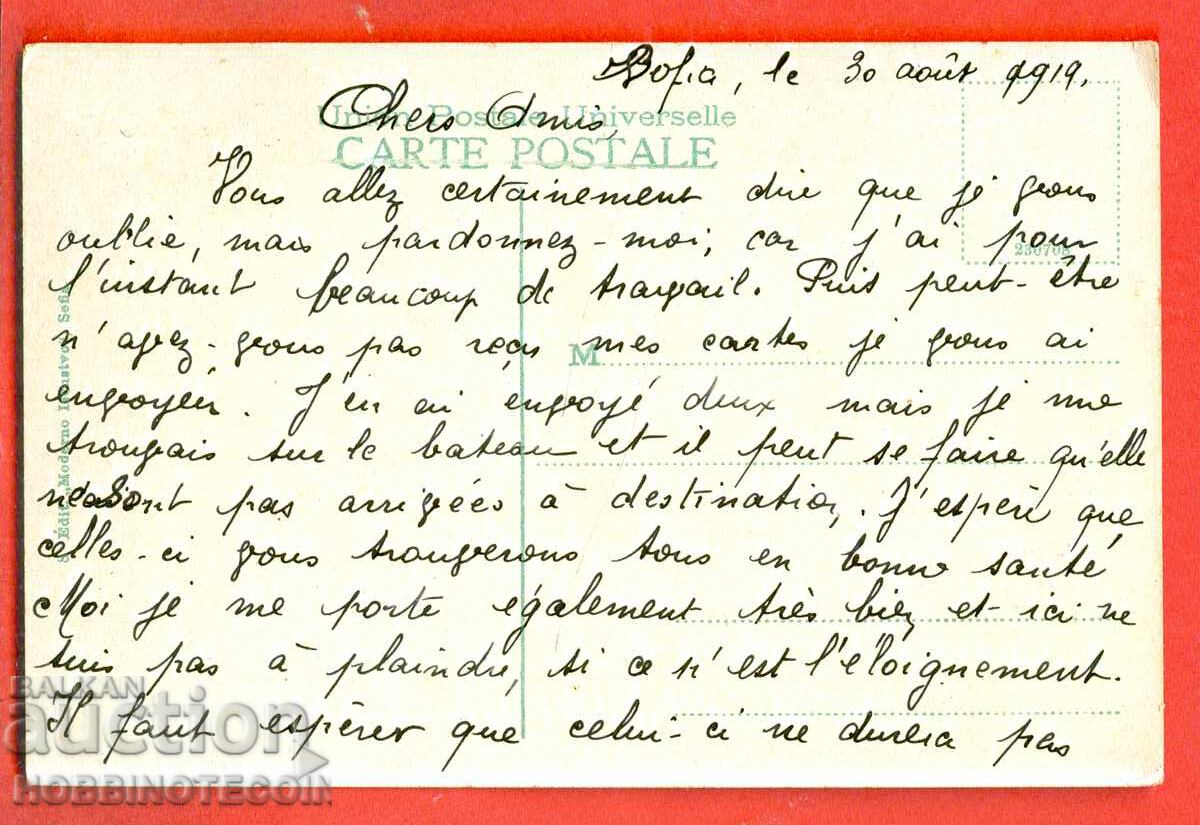 Sofia, le 30 août 1919.
Chers Amis,
Union Postale Universelle
CARTE POSTALE
Vous allez certainement dire que je vous
oublie, mais pardonnez-moi, car j'ai pour
230708
l'instant beaucoup de travail. Puis peut-être
n'avez-vous pas reçu mes cartes je vous ai
M
envoyées. J'en ai envoyé deux mais je me
trouvais sur le bateau et il peut se faire qu'elle
ne soient pas arrivées à destination. J'espère que
celles-ci vous trouverons tous en bonne santé
Moi je me porte également très bien et ici ne
suis pas à plaindre, si ce n'est l'éloignement.
Il faut espérer que celui-ci ne durera pas
Édit. „Moderno Izkustvo" Sofia
BALKAN
auction
HOBBINOTECOIN